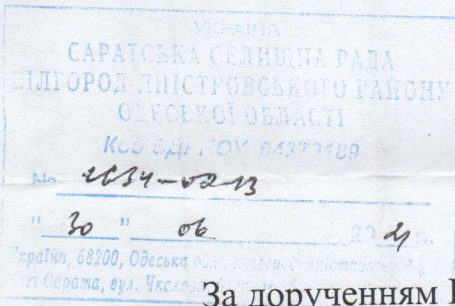 УКРАЇНА
САРАТСЬКА СЕЛИЩНА РАДА
БІЛГОРОД-ДНІСТРОВСЬКОГО РАЙОНУ
ОДЕСЬКОЇ ОБЛАСТІ
Код ЄДРПОУ 04379189
№ 2634-02-13
" 30 " 06 20 21 р.
Україна, 68200, Одеська
Сарата, вул.
За дорученням